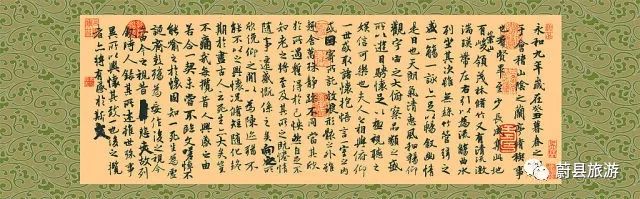 永和九年歲在癸丑暮春之初會
于會稽山陰之蘭亭脩稧事
也羣賢畢至少長咸集此地
有峻領茂林脩竹又有清流激
湍暎帶左右引以為流觴曲水
列坐其次雖無絲竹管弦之
盛一觴一詠亦足以暢敘幽情
是日也天朗氣清惠風和暢仰
觀宇宙之大俯察品類之盛
所以遊目騁懷足以極視聽之
娛信可樂也夫人之相與俯仰
一世或取諸懷抱悟言一室之內
或因寄所託放浪形骸之外雖
趣舍萬殊靜躁不同當其欣
於所遇蹔得於己怏然自足不
知老之將至及其所之既惓情
隨事遷感慨係之矣向之所
欣俛仰之間以為陳迹猶不
能不以之興懷況脩短隨化終
期於盡古人云死生亦大矣豈
不痛哉每攬昔人興感之由
若合一契未嘗不臨文嗟悼不
能喻之於懷固知一死生為虛
誕齊彭殤為妄作後之視今
亦由今之視昔悲夫故列
敘時人錄其所述雖世殊事
異所以興懷其致一也後之攬
者亦將有感於斯文
蔚县旅游